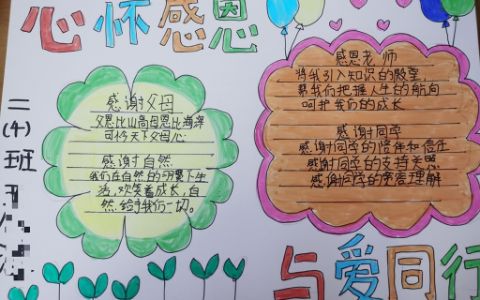 心怀感恩
二
(4)
班
感谢父母
父恩比山高母恩比海深
可怜天下父母心
感谢自然
我们在自然的呵护下生
活,欢笑着成长,自
然给予我们一切。
感恩老师
将我引入知识的殿堂,
帮我们把握人生的航向
呵护我们的成长
感谢同学
感谢同学的信任
感谢同学的支持关照
感谢同学的宽容理解
与爱同行